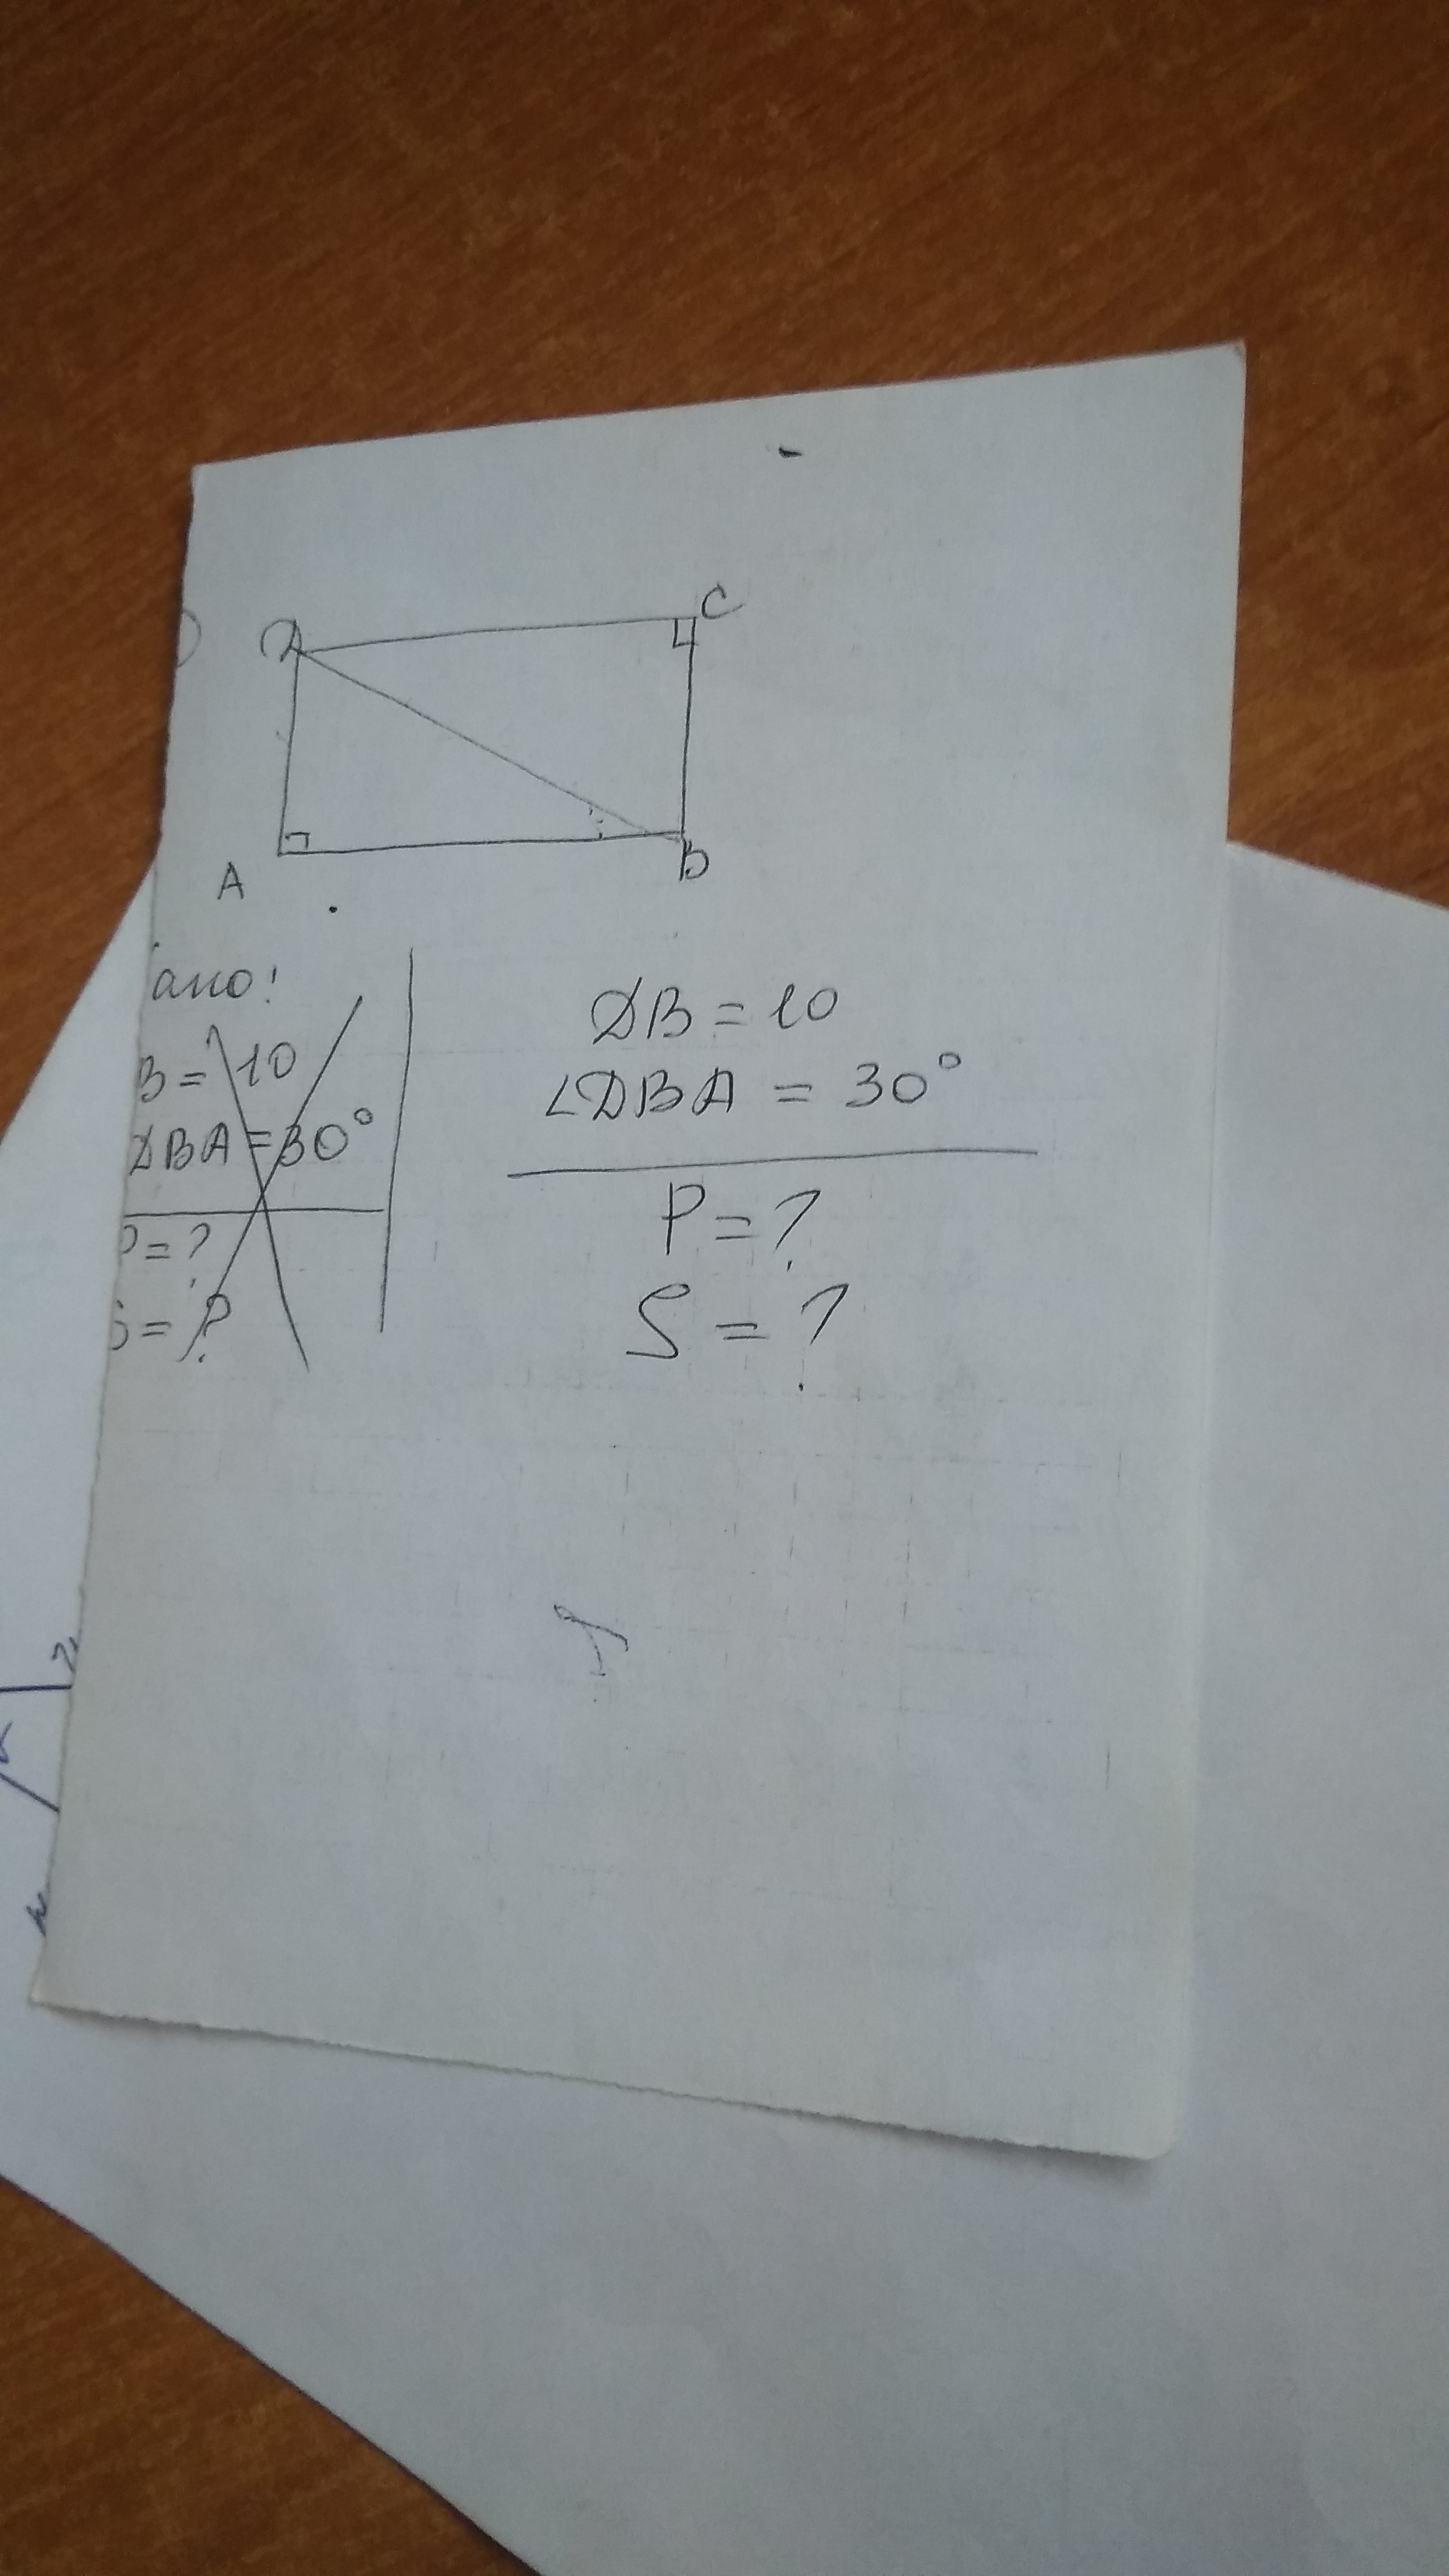 D C
A B
ано:
B = 10
DBA = 30°
P = ?
S = ?
DB = 10
∠DBA = 30°
P = ?
S = ?